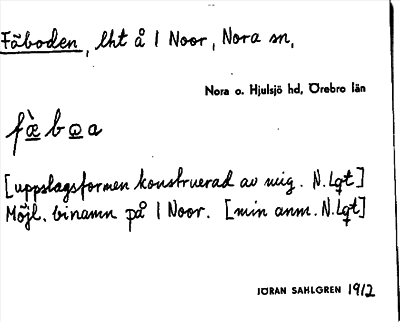 Fäboden, lht å 1 Noor, Nora sn,
Nora o. Hjulsjö hd, Örebro län
fæ̀bꞷa
[uppslagsformen konstruerad av mig. N. Lgt]
Möjl. binamn på 1 Noor. [min anm. N. Lgt]
JÖRAN SAHLGREN 1912